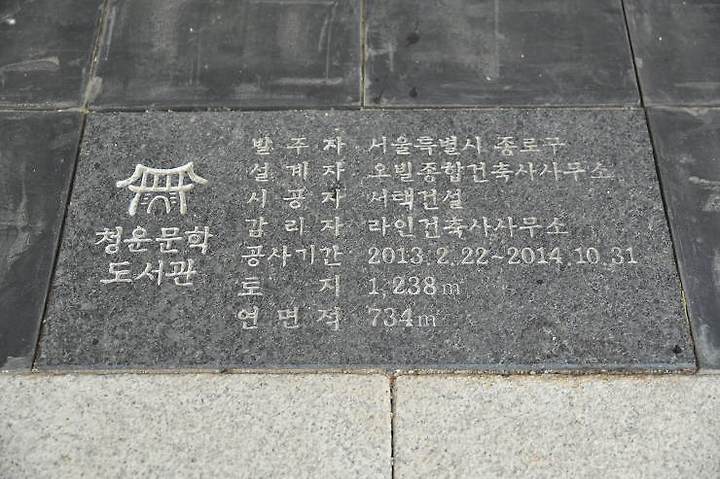 청운문학
도서관
발주자 서울특별시 종로구
설계자 오빌종합건축사사무소
시공자 서택건설
감리자 라인건축사사무소
공사기간 2013.2.22~2014.10.31
토지 1,238㎡
연면적 734㎡